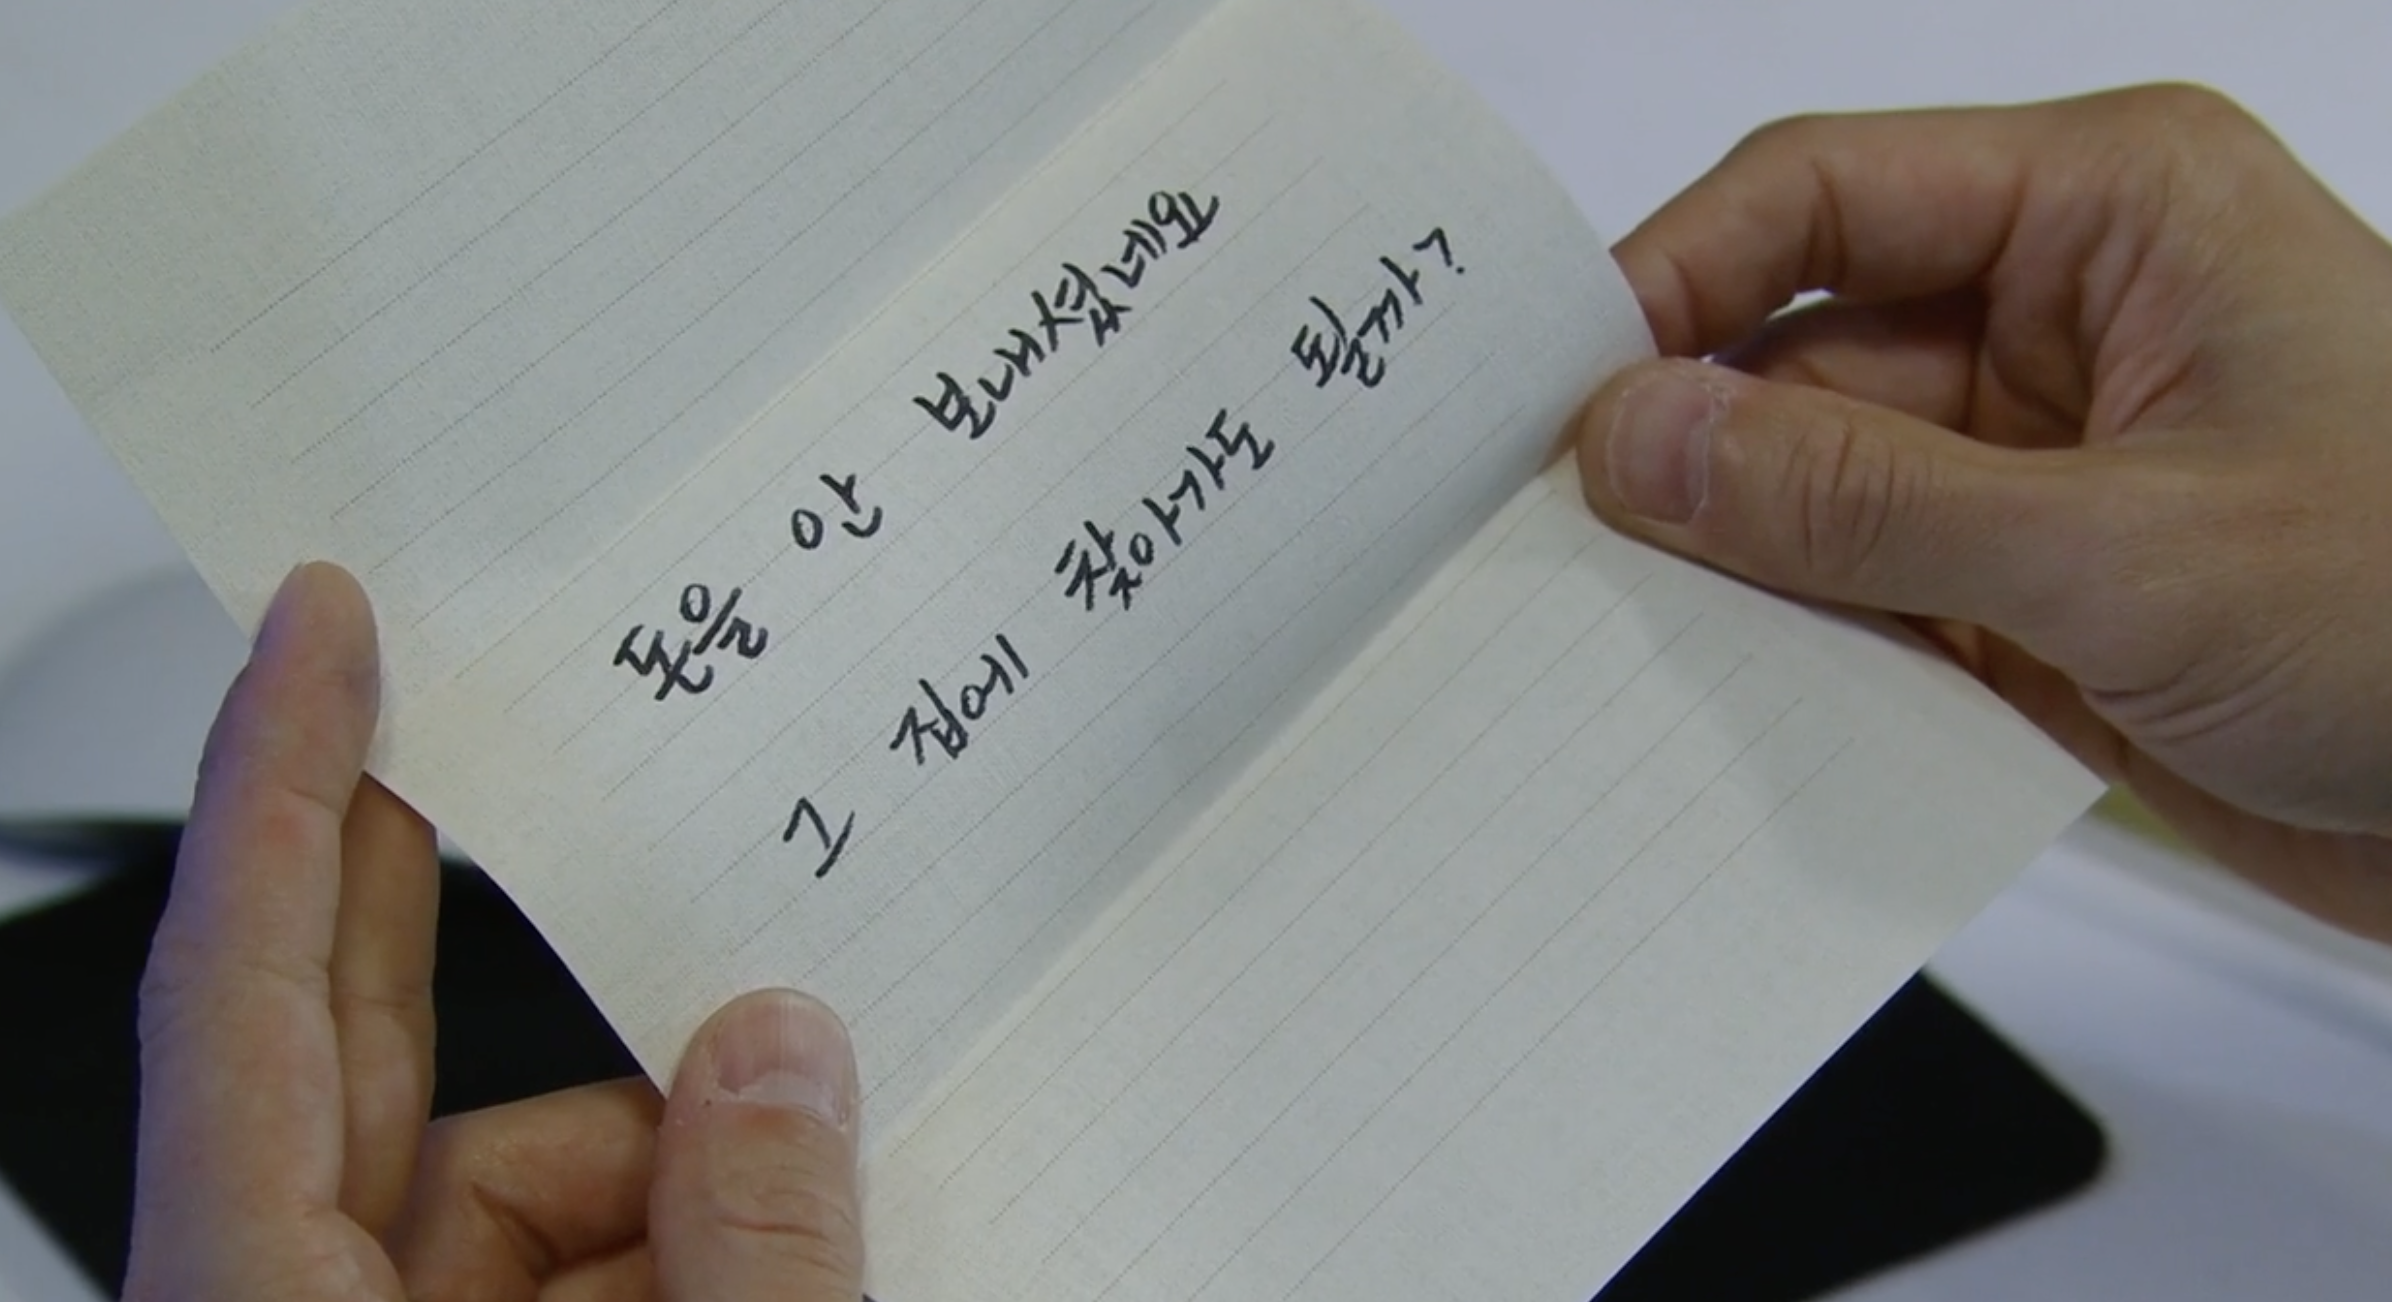 돈을 안 보내셨네요
그 집에 찾아가도 될까?